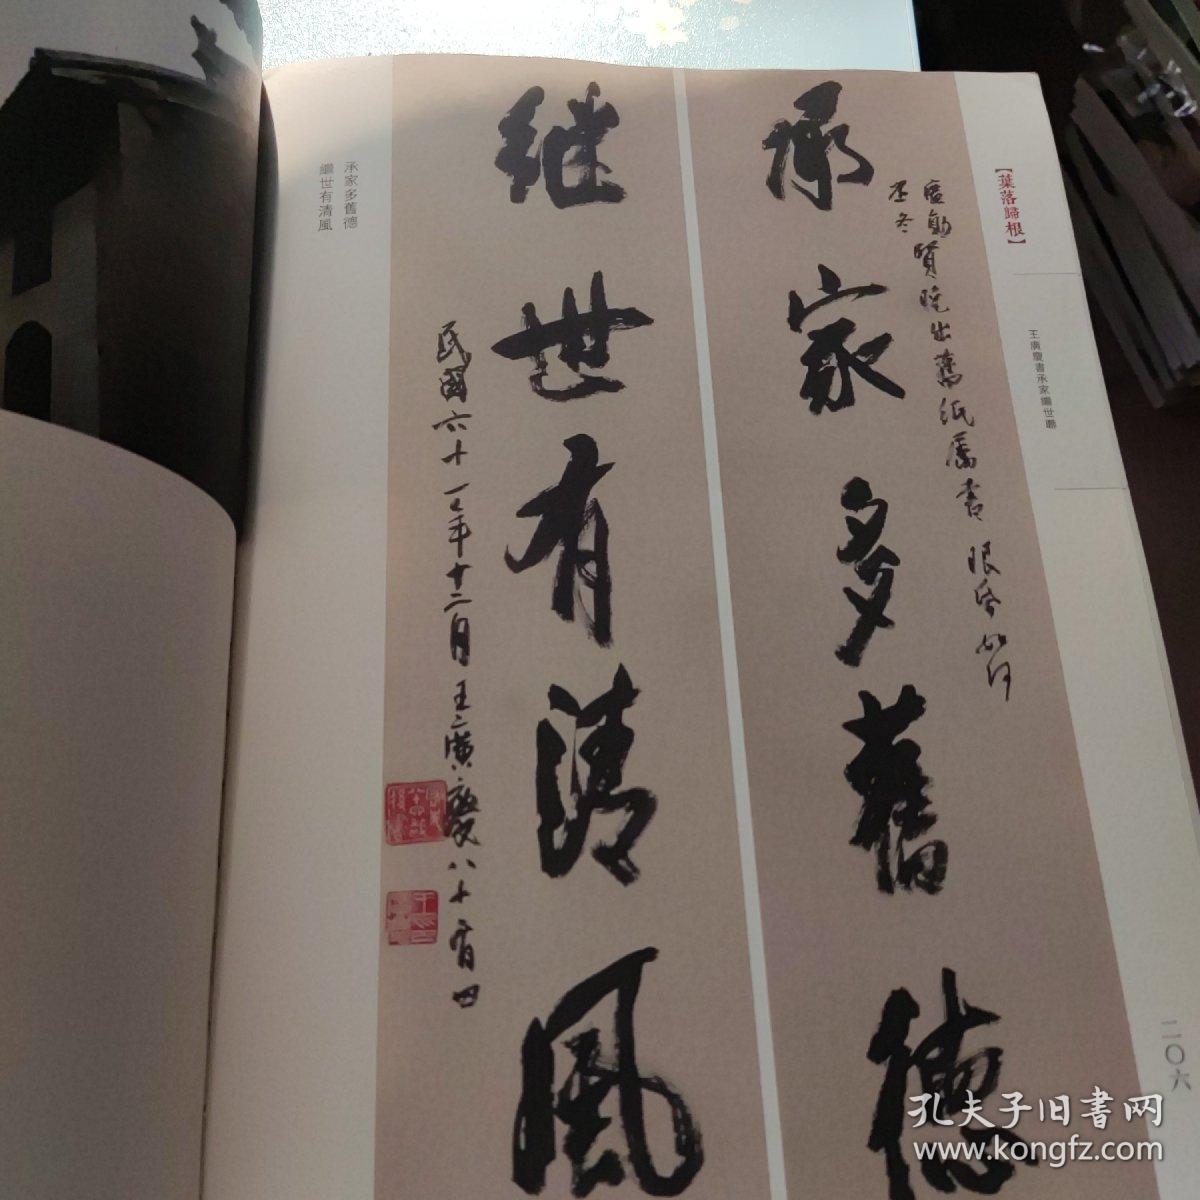 【葉落歸根】
王廣慶書承家繼世聯
二〇六
賢晚出舊紙屬書 眼昏如何
承家多舊德
继世有清風
民國六十一年十二月王廣慶八十有四
承家多舊德
繼世有清風
孔夫子旧書网
www.kongfz.com